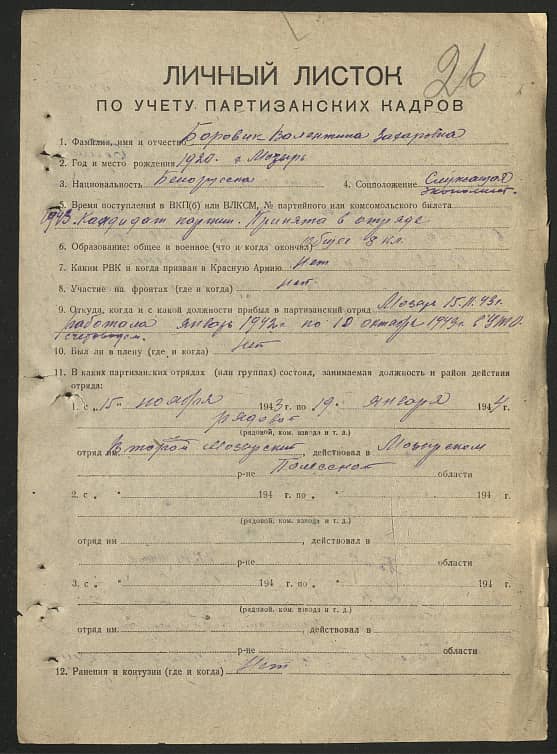 26
ЛИЧНЫЙ ЛИСТОК
ПО УЧЕТУ ПАРТИЗАНСКИХ КАДРОВ
1. Фамилия, имя и отчество Боровик Валентина Захаровна
2. Год и место рождения 1920 г. Мозырь
3. Национальность Белорусска 4. Соцположение Служащая
экономист.
5. Время поступления в ВКП(б) или ВЛКСМ, № партийного или комсомольского билета
1943. Кандидат партии. Принята в отряде
6. Образование: общее и военное (что и когда окончил) общее 8 кл.
7. Каким РВК и когда призван в Красную Армию Нет
8. Участие на фронтах (где и когда) нет
9. Откуда, когда и с какой должности прибыл в партизанский отряд Мозырь 15.11.43 г.
работала январь 1942 г по 10 октября 1943 г. в
счетоводом.
10. Был ли в плену (где и когда) Нет
11. В каких партизанских отрядах (или группах) состоял, занимаемая должность и район действия
отряда:
1. с „15" ноября 1943 г. по „19" января 1944 г.
рядовой
(рядовой, ком. взвода и т. д.)
отряд им Второй Мозырский, действовал в Мозырском
р-не Полесской области
2. с „ " 194 г. по „ " 194 г.
(рядовой, ком. взвода и т. д.)
отряд им , действовал в
р-не области
3. с „ " 194 г. по „ " 194 г.
(рядовой, ком. взвода и т. д.)
отряд им , действовал в
р-не области
12. Ранения и контузии (где и когда) Нет